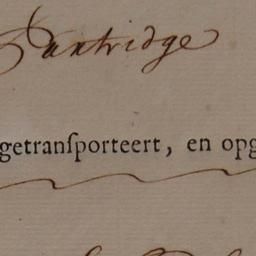 Partridge
getranſporteert, en opg